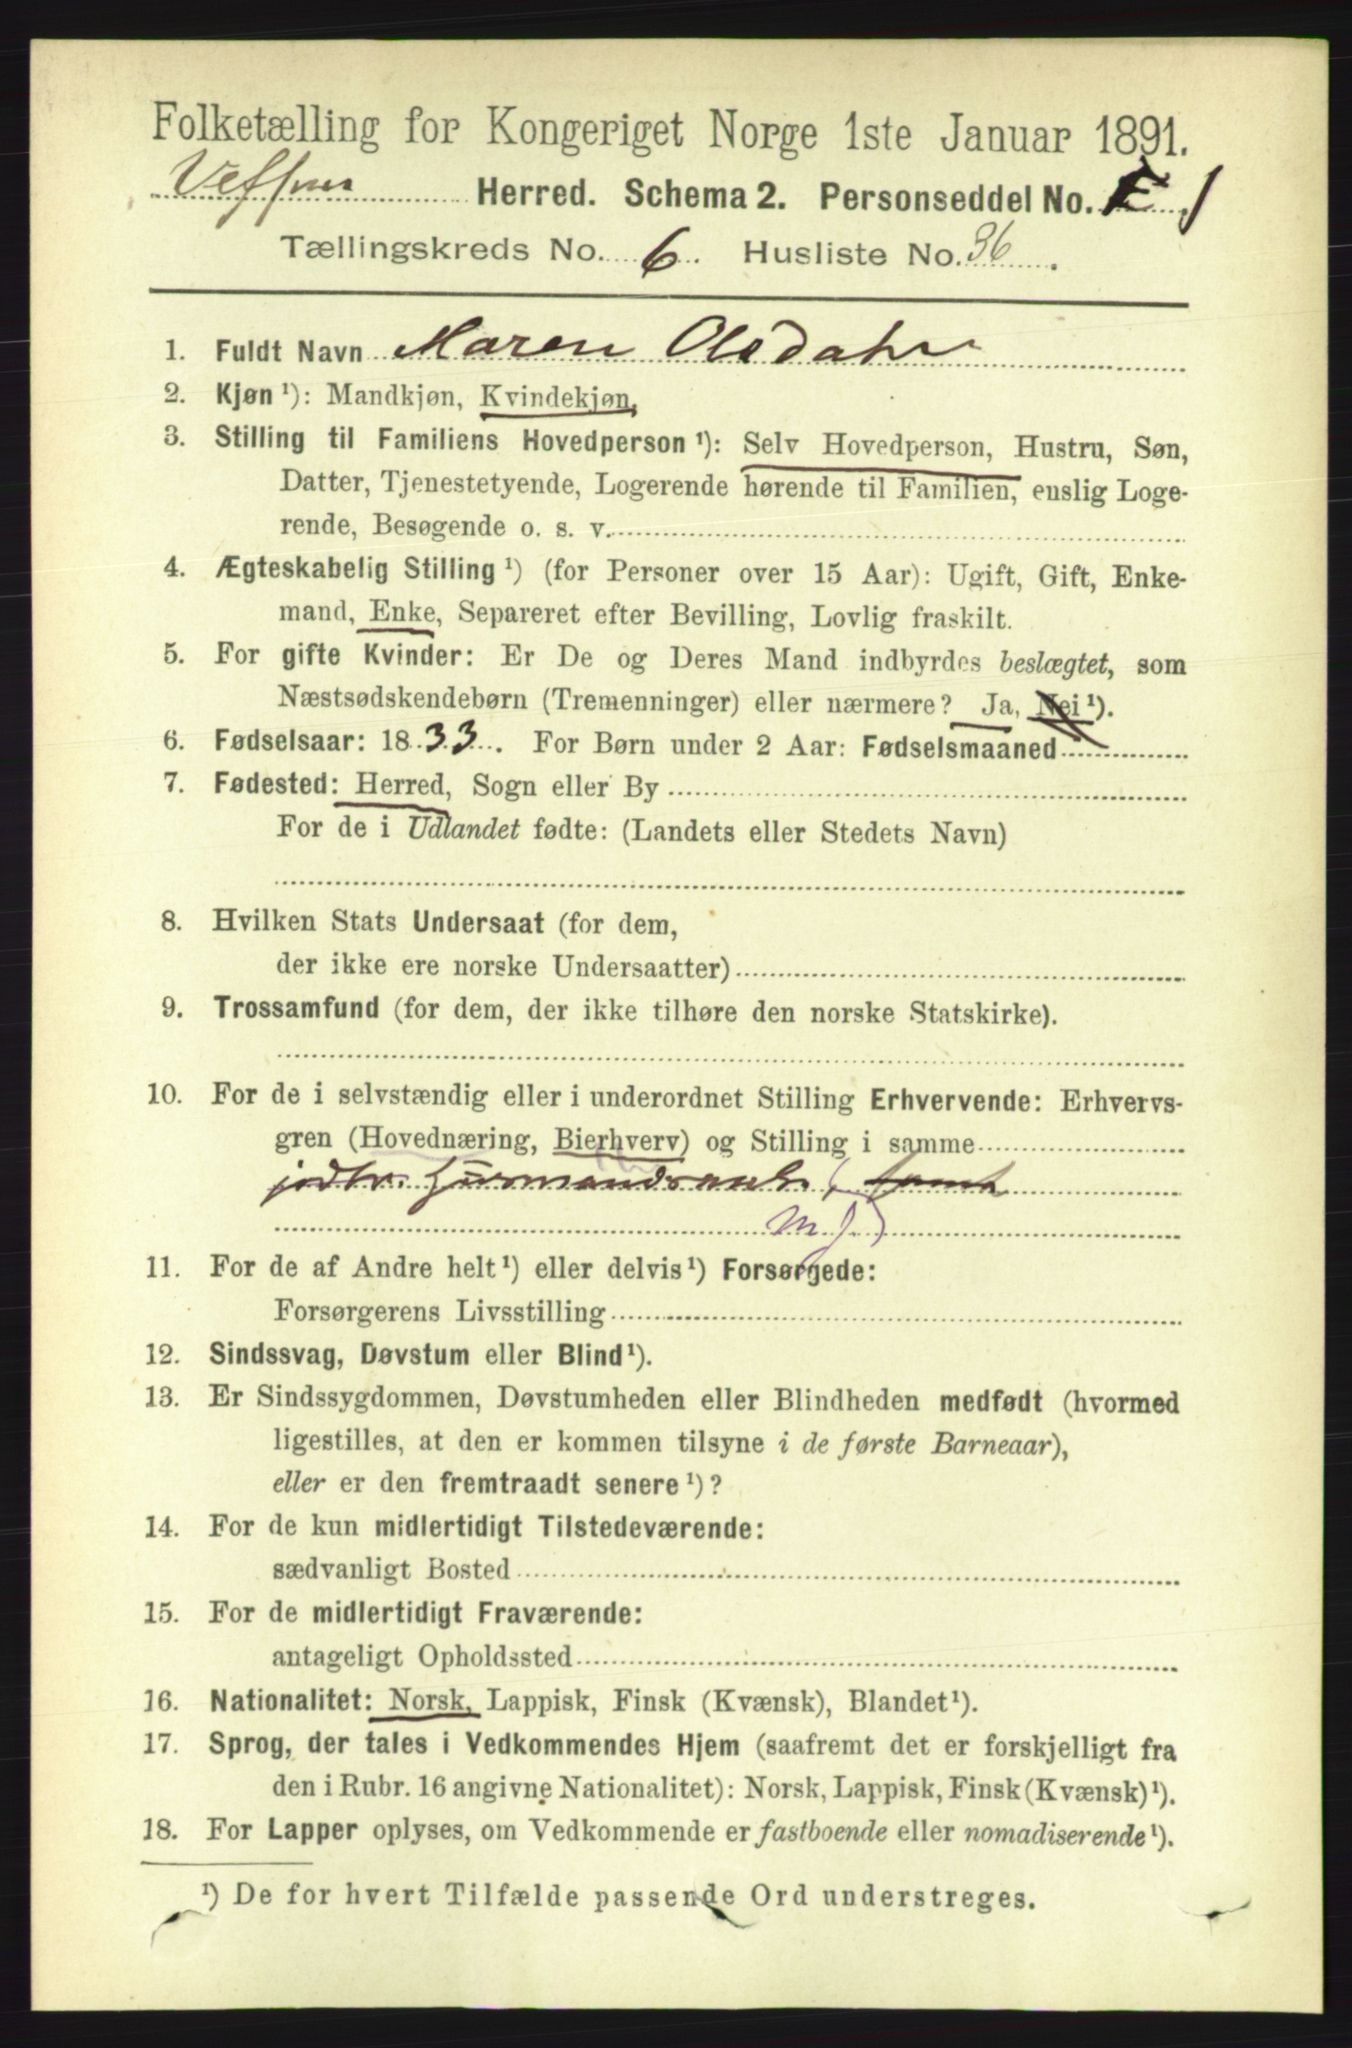 Folketælling for Kongeriget Norge 1ste Januar 1891.
Vefsn Herred. Schema 2. Personseddel No. 1
Tællingskreds No. 6. Husliste No. 36.
1. Fuldt Navn Maren Olsdatr
2. Kjøn ¹): Mandkjøn, Kvindekjøn,
3. Stilling til Familiens Hovedperson ¹): Selv Hovedperson, Hustru, Søn,
Datter, Tjenestetyende, Logerende hørende til Familien, enslig Loge-
rende, Besøgende o. s. v.
4. Ægteskabelig Stilling ¹) (for Personer over 15 Aar): Ugift, Gift, Enke-
mand, Enke, Separeret efter Bevilling, Lovlig fraskilt.
5. For gifte Kvinder: Er De og Deres Mand indbyrdes beslægtet, som
Næstsødskendebørn (Tremenninger) eller nærmere? Ja, Nei ¹).
6. Fødselsaar: 1833. For Børn under 2 Aar: Fødselsmaaned
7. Fødested: Herred, Sogn eller By
For de i Udlandet fødte: (Landets eller Stedets Navn)
8. Hvilken Stats Undersaat (for dem,
der ikke ere norske Undersaatter)
9. Trossamfund (for dem, der ikke tilhøre den norske Statskirke).
10. For de i selvstændig eller i underordnet Stilling Erhvervende: Erhvervs-
gren (Hovednæring, Bierhverv) og Stilling i samme
m. J.)
11. For de af Andre helt ¹) eller delvis ¹) Forsørgede:
Forsørgerens Livsstilling
12. Sindssvag, Døvstum eller Blind ¹).
13. Er Sindssygdommen, Døvstumheden eller Blindheden medfødt (hvormed
ligestilles, at den er kommen tilsyne i de første Barneaar),
eller er den fremtraadt senere ¹)?
14. For de kun midlertidigt Tilstedeværende:
sædvanligt Bosted
15. For de midlertidigt Fraværende:
antageligt Opholdssted
16. Nationalitet: Norsk, Lappisk, Finsk (Kvænsk), Blandet ¹).
17. Sprog, der tales i Vedkommendes Hjem (saafremt det er forskjelligt fra
den i Rubr. 16 angivne Nationalitet): Norsk, Lappisk, Finsk (Kvænsk) ¹).
18. For Lapper oplyses, om Vedkommende er fastboende eller nomadiserende ¹).
¹) De for hvert Tilfælde passende Ord understreges.